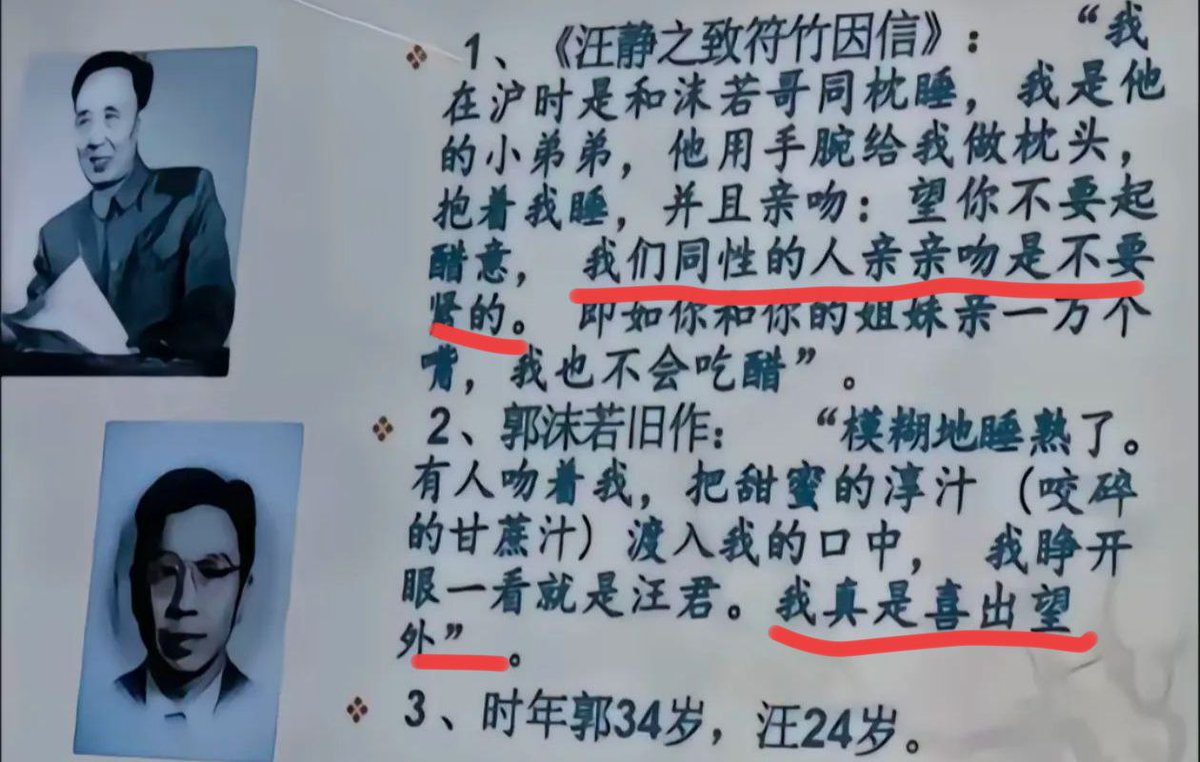 1、《汪静之致符竹因信》： “我
在沪时是和沫若哥同枕睡，我是他
的小弟弟，他用手腕给我做枕头，
抱着我睡，并且亲吻：望你不要起
醋意， 我们同性的人亲亲吻是不要
紧的。 即如你和你的姐妹亲一万个
嘴，我也不会吃醋”。
2、郭沫若旧作： “模糊地睡熟了。
有人吻着我，把甜蜜的淳汁（咬碎
的甘蔗汁）渡入我的口中， 我睁开
眼一看就是汪君。我真是喜出望
外”。
3、时年郭34岁，汪24岁。